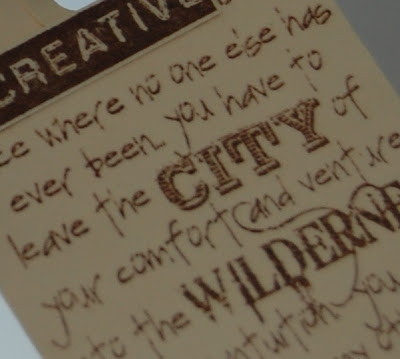 CREATIVE
where no one else has
ever been. you have to
leave the CITY of
your comfort and venture
the WILDERNE
you